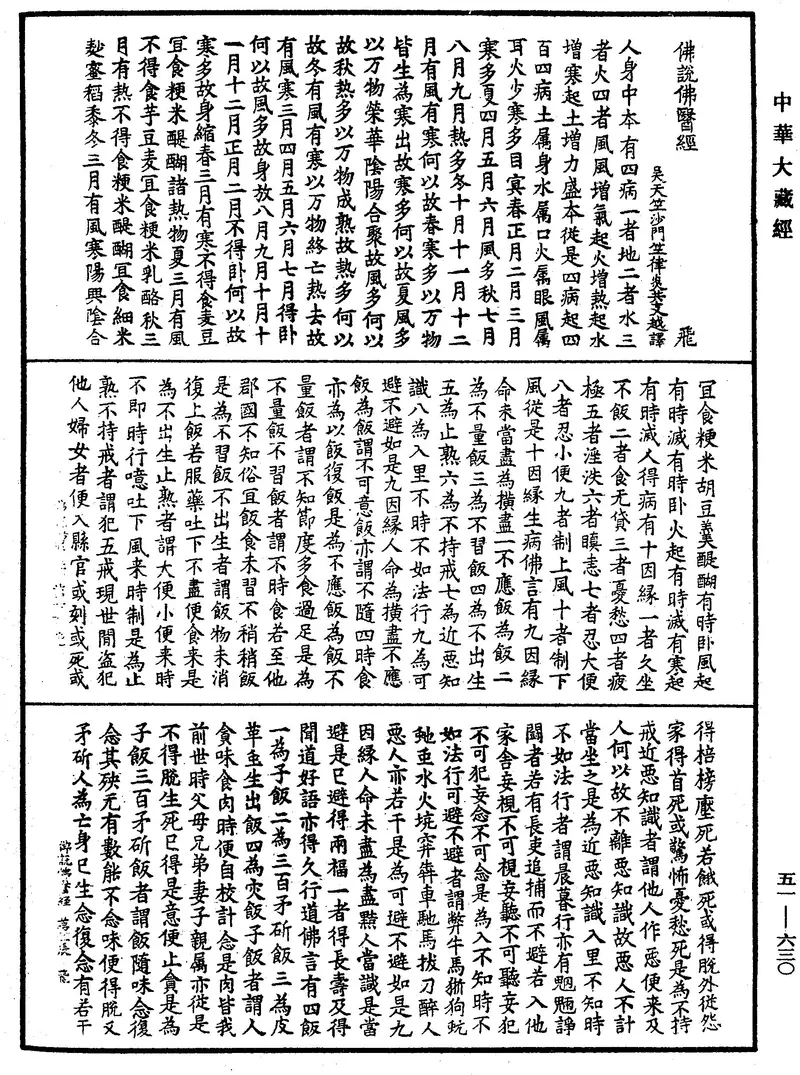 中華大藏經
五一—六三〇
佛說佛醫經
飛
吳天竺沙門竺律炎共支越譯
人身中本有四病一者地二者水三
者火四者風風增氣起火增熱起水
增寒起土增力盛本從是四病起四
百四病土属身水属口火属眼風属
耳火少寒多目冥春正月二月三月
寒多夏四月五月六月風多秋七月
八月九月熱多冬十月十一月十二
月有風有寒何以故春寒多以万物
皆生為寒出故寒多何以故夏風多
以万物榮華陰陽合聚故風多何以
故秋熱多以万物成熟故熱多何以
故冬有風有寒以万物終亡熱去故
有風寒三月四月五月六月七月得卧
何以故風多故身放八月九月十月十
一月十二月正月二月不得卧何以故
寒多故身縮春三月有寒不得食麦豆
冝食粳米醍醐諸熱物夏三月有風
不得食芋豆麦冝食粳米乳酪秋三
月有熱不得食粳米醍醐冝食細米
麨蜜稻黍冬三月有風寒陽興陰合
冝食粳米胡豆羹醍醐有時卧風起
有時滅有時卧火起有時滅有寒起
有時滅人得病有十因緣一者久坐
不飯二者食无貸三者憂愁四者疲
極五者淫泆六者瞋恚七者忍大便
八者忍小便九者制上風十者制下
風從是十因緣生病佛言有九因緣
命未當盡為橫盡一不應飯為飯二
為不量飯三為不習飯四為不出生
五為止熟六為不持戒七為近惡知
識八為入里不時不如法行九為可
避不避如是九因緣人命為橫盡不應
飯為飯謂不可意飯亦謂不隨四時食
亦為以飯復飯是為不應飯為飯不
量飯者謂不知節度多食過足是為
不量飯不習飯者謂不時食若至他
郡國不知俗冝飯食未習不稍稍飯
是為不習飯不出生者謂飯物未消
復上飯若服藥吐下不盡便食來是
為不出生止熟者謂大便小便來時
不即時行噫吐下風來時制是為止
熟不持戒者謂犯五戒現世間盜犯
他人婦女者便入縣官或刻或死或
得棓榜壓死若餓死或得脫外從怨
家得首死或驚怖憂愁死是為不持
戒近惡知識者謂他人作惡便来及
人何以故不離惡知識故惡人不計
當坐之是為近惡知識入里不知時
不如法行者謂晨暮行亦有魍魎諍
鬪者若有長吏追捕而不避若入他
家舍妄視不可視妄聽不可聽妄犯
不可犯妄念不可念是為入不知時不
如法行可避不避者謂弊牛馬猘狗蚖
虵虫水火坑穽犇車馳馬拔刀醉人
惡人亦若干是為可避不避如是九
因緣人命未盡為盡黠人當識是當
避是已避得兩福一者得長壽及得
聞道好語亦得久行道佛言有四飯
一為子飯二為三百矛斫飯三為皮
革虫生出飯四為灾飯子飯者謂人
貪味食肉時便自校計念是肉皆我
前世時父母兄弟妻子親属亦從是
不得脫生死已得是意便止貪是為
子飯三百矛斫飯者謂飯隨味念復
念其殃无有數能不念味便得脫又
矛斫人為亡身已生念復念有若干